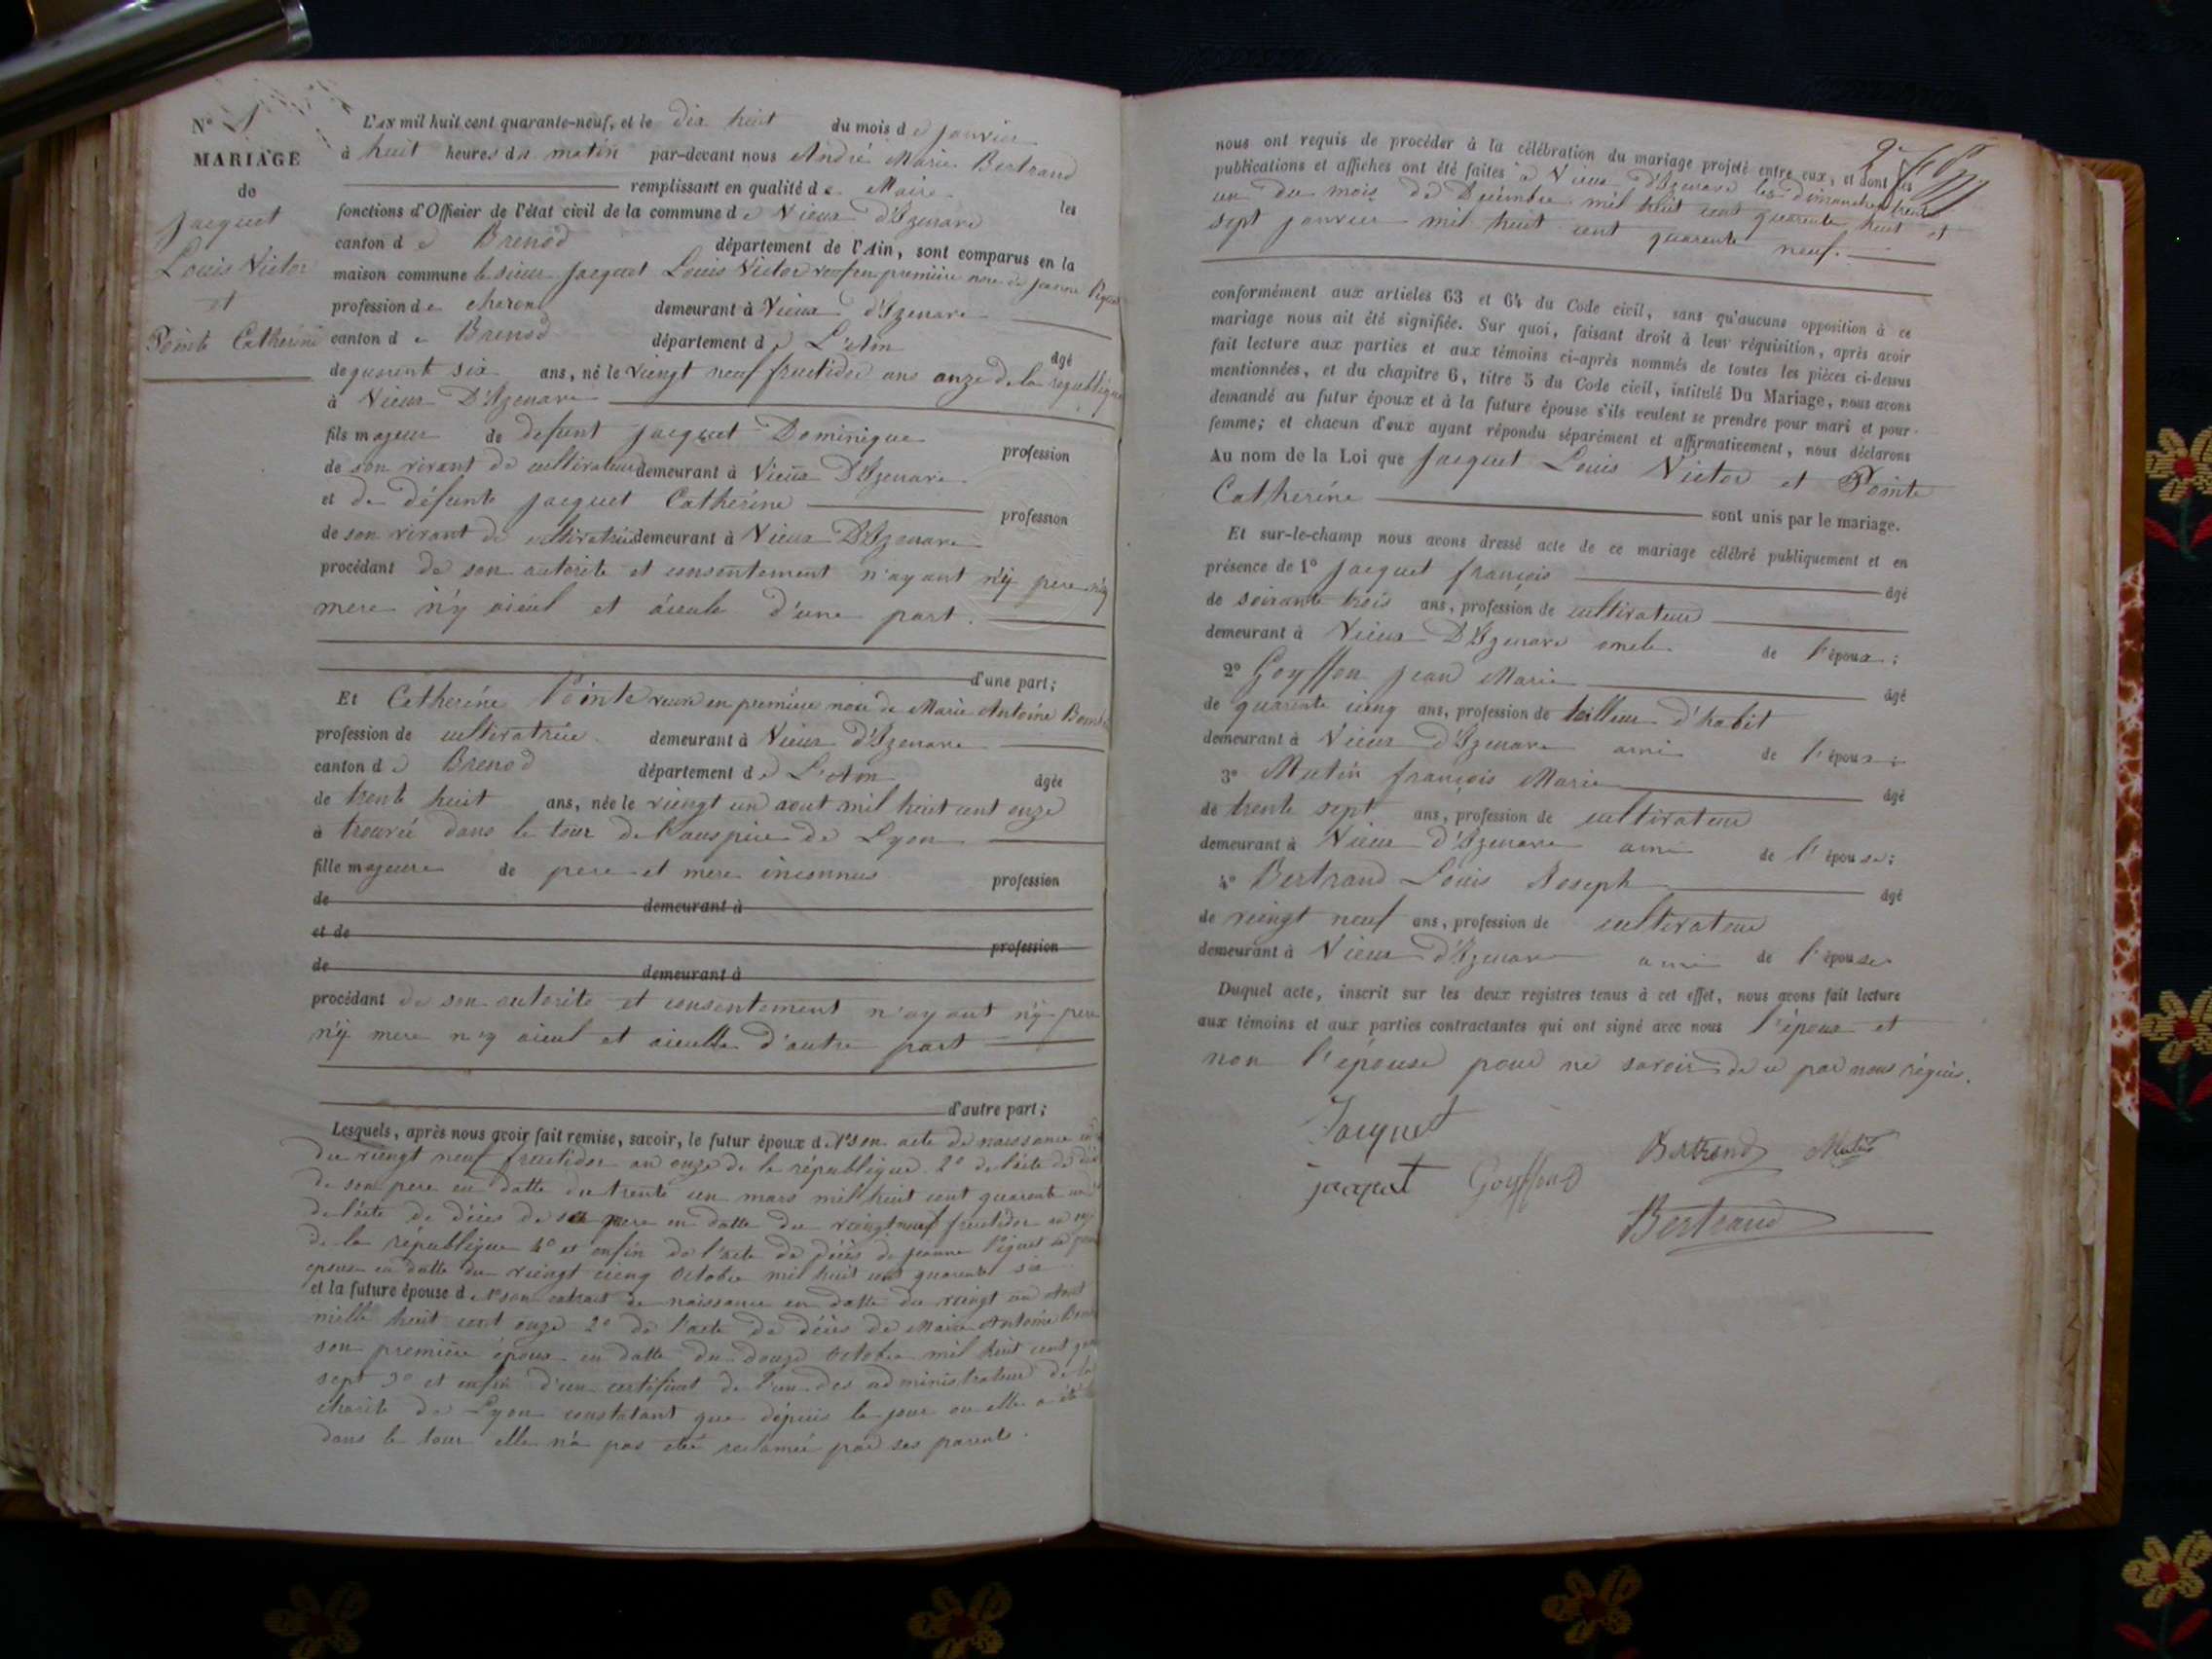 N° 1
MARIAGE
de
Jacquet
Louis Victor
et
Pointe Catherine
L'AN mil huit cent quarante-neuf, et le dix huit du mois de janvier
à huit heures du matin par-devant nous André Marie Bertrand
remplissant en qualité de Maire les
fonctions d'Officier de l'état civil de la commune de Vieux D'Izenave
canton de Brenod département de l'Ain, sont comparus en la
maison commune le sieur Jacquet Louis Victor veuf en première noce de jeanne Piquet
profession de charon demeurant à Vieux d'Izenave
canton de Brenod département de L'Ain âgé
de quarente six ans, né le viengt neuf fructidor ans onze de la republique
à Vieux D'Izenave
fils majeur de defunt jacquet Dominique profession
de son vivant de cultivateur demeurant à Vieux D'Izenave
et de défunte jacquet Catherine profession
de son vivant de cultivatrice demeurant à Vieux D'Izenave
procédant de son autorite et consentement n'ayant n'y pere n'y
mere n'y aieul et aieule d'une part.
d'une part;
Et Catherine Pointe veuve en première noce de Marie Antoine
profession de cultivatrice demeurant à Vieux d'Izenave
canton de Brenod département de L'Ain âgée
de trente huit ans, née le viengt un aout mil huit cent onze
à trouvée dans le tour de l'auspice de Lyon
fille majeure de pere et mere inconnus profession
de demeurant à
et de profession
de demeurant à
procédant de son autorite et consentement n'ayant n'y pere
n'y mere n'y aieul et aieulle d'autre part
d'autre part;
Lesquels, après nous avoir fait remise, savoir, le futur époux de 1° son acte de naissance en
du viengt neuf fructidor an onze de la république 2° de l'acte de
de son pere en datte du trente un mars mil huit cent quarente
de l'acte de décès de sa mere en datte du viengt neuf fructidor an
de la république 4° et enfin de l'acte de décès de jeanne Piquet sa
epouse en datte du viengt cinq Octobre mil huit cent quarente six
et la future épouse de 1° son extrait de naissance en datte du viengt un Aout
mille huit cent onze 2° de l'acte de décès de Marie Antoine
son première époux en datte du douze Octobre mil huit cent
sept 3° et enfin d'un certificat de l'un des administrateur de la
charité de Lyon constatant que dépuis le jour ou elle a été
dans le tour elle n'a pas eté reclamée par ses parents.
nous ont requis de procéder à la célébration du mariage projeté entre eux, et dont les
publications et affiches ont été faites à Vieux d'Izenave les dimanches trente
un du mois de Décembre mil huit cent quarente huit et
sept janvier mil huit cent quarente neuf.
conformément aux articles 63 et 64 du Code civil, sans qu'aucune opposition à ce
mariage nous ait été signifiée. Sur quoi, faisant droit à leur réquisition, après avoir
fait lecture aux parties et aux témoins ci-après nommés de toutes les pièces ci-dessus
mentionnées, et du chapitre 6, titre 5 du Code civil, intitulé Du Mariage, nous avons
demandé au futur époux et à la future épouse s'ils veulent se prendre pour mari et pour
femme; et chacun d'eux ayant répondu séparément et affirmativement, nous déclarons
Au nom de la Loi que Jacquet Louis Victor et Pointe
Catherine
sont unis par le mariage.
Et sur-le-champ nous avons dressé acte de ce mariage célébré publiquement et en
présence de 1° jacquet françois âgé
de soixante trois ans, profession de cultivateur
demeurant à Vieux D'Izenave oncle de l'époux;
2° Goyffon jean Marie âgé
de quarente cinq ans, profession de tailleur d'habit
demeurant à Vieux d'Izenave ami de l'époux;
3° Mutin françois Marie âgé
de trente sept ans, profession de cultivateur
demeurant à Vieux d'Izenave ami de l'épouse;
4° Bertrand Louis Joseph âgé
de viengt neuf ans, profession de cultivateur
demeurant à Vieux d'Izenave ami de l'épouse
Duquel acte, inscrit sur les deux registres tenus à cet effet, nous avons fait lecture
aux témoins et aux parties contractantes qui ont signé avec nous l'époux et
non l'épouse pour ne savoir de ce par nous réquis.
Jacquet
Bertrand Mutin
jacquet Goyffon
Bertrand